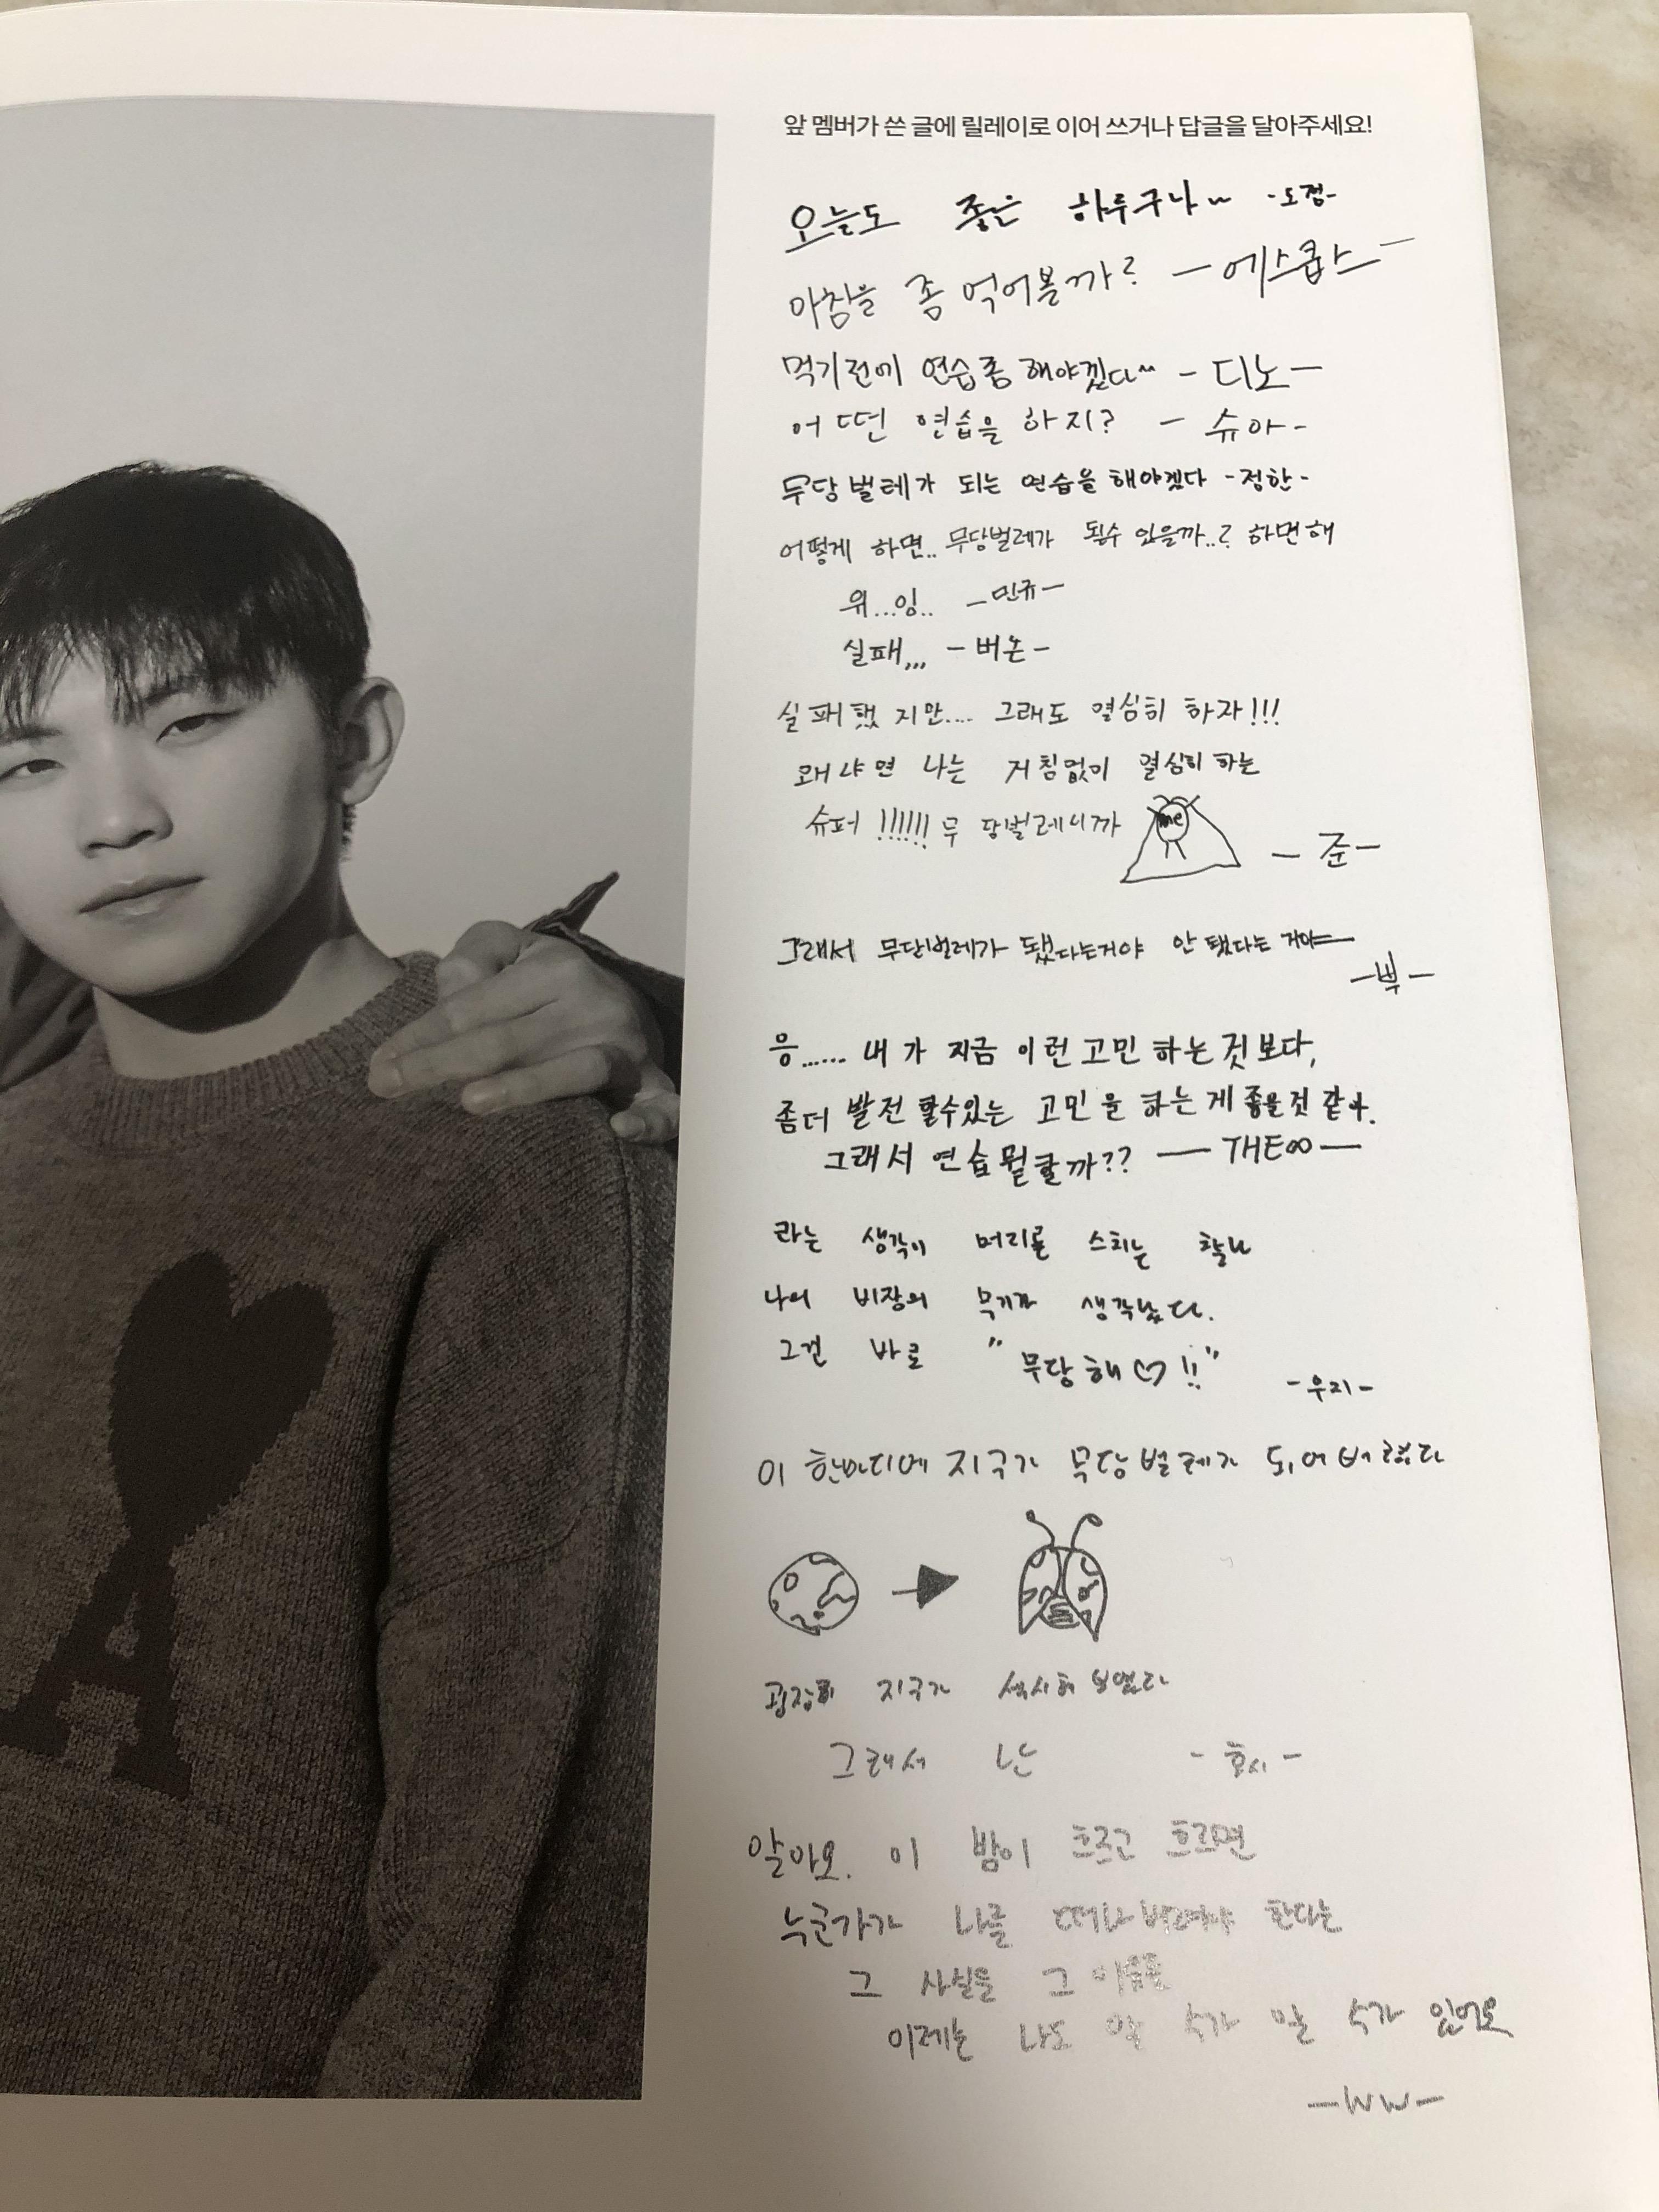 앞 멤버가 쓴 글에 릴레이로 이어 쓰거나 답글을 달아주세요!
오늘도 좋은 하루구나~ -도겸-
아침을 좀 먹어볼까? -에스쿱스-
먹기전에 연습좀 해야겠다~ -디노-
어떤 연습을 하지? -슈아-
무당벌레가 되는 연습을 해야겠다 -정한-
어떻게 하면.. 무당벌레가 될수 있을까..? 하면해
위...잉.. -민규-
실패,,, -버논-
실패했지만.... 그래도 열심히 하자!!!
왜냐면 나는 거침없이 열심히 하는
슈퍼!!!!!! 무당벌레니까 me -준-
그래서 무당벌레가 됐다는거야 안 됐다는 거야
-뿌-
응...... 내가 지금 이런 고민 하는것 보다,
좀더 발전 할수있는 고민을 하는게 좋을것 같아.
그래서 연습뭘할까?? -THE∞-
라는 생각이 머리를 스치는 찰나
나의 비장의 무기가 생각났다.
그건 바로 "무당해♡!!" -우지-
이 한마디에 지구가 무당벌레가 되어버렸다
굉장히 지구가 섹시해 보였다
그래서 난 -호시-
알아요. 이 밤이 흐르고 흐르면
누군가가 나를 떠나버려야 한다는
그 사실을 그 이유를
이제는 나도 알 수가 알 수가 있어요
-WW-
A